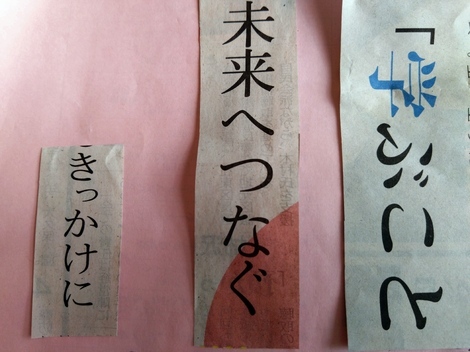 「学ぶこと
未来へつなぐ
きっかけに